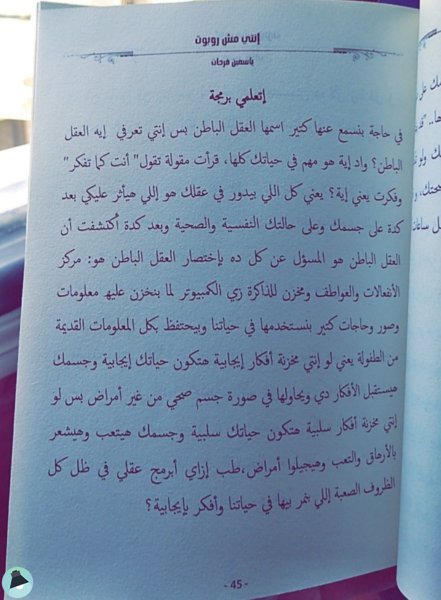 إنتي مش روبوت
ياسمين فرحات
إتعلمي برمجة
في حاجة بنسمع عنها كتير اسمها العقل الباطن بس إنتي تعرفي إيه العقل
الباطن؟ واد إية هو مهم في حياتك كلها، قرأت مقولة تقول" أنت كما تفكر"
وفكرت يعني إية؟ يعني كل اللي بيدور في عقلك هو إللي هيأثر عليكي بعد
كدة على جسمك وعلى حالتك النفسية والصحية وبعد كدة أكتشفت أن
العقل الباطن هو المسؤل عن كل ده بإختصار العقل الباطن هو: مركز
الأنفعالات والعواطف ومخزن للذاكرة زي الكمبيوتر لما بنخزن عليه معلومات
وصور وحاجات كتير بنستخدمها في حياتنا وبيحتفظ بكل المعلومات القديمة
من الطفولة يعني لو إنتي مخزنة أفكار إيجابية هتكون حياتك إيجابية وجسمك
هيستقبل الأفكار دي ويحاولها في صورة جسم صحي من غير أمراض بس لو
إنتي مخزنة أفكار سلبية هتكون حياتك سلبية وجسمك هيتعب وهيشعر
بالأرهاق والتعب وهيجيلوا أمراض،طب إزاي أبرمج عقلي في ظل كل
الظروف الصعبة إللي بنمر بيها في حياتنا وأفكر بإيجابية؟
- 45 -